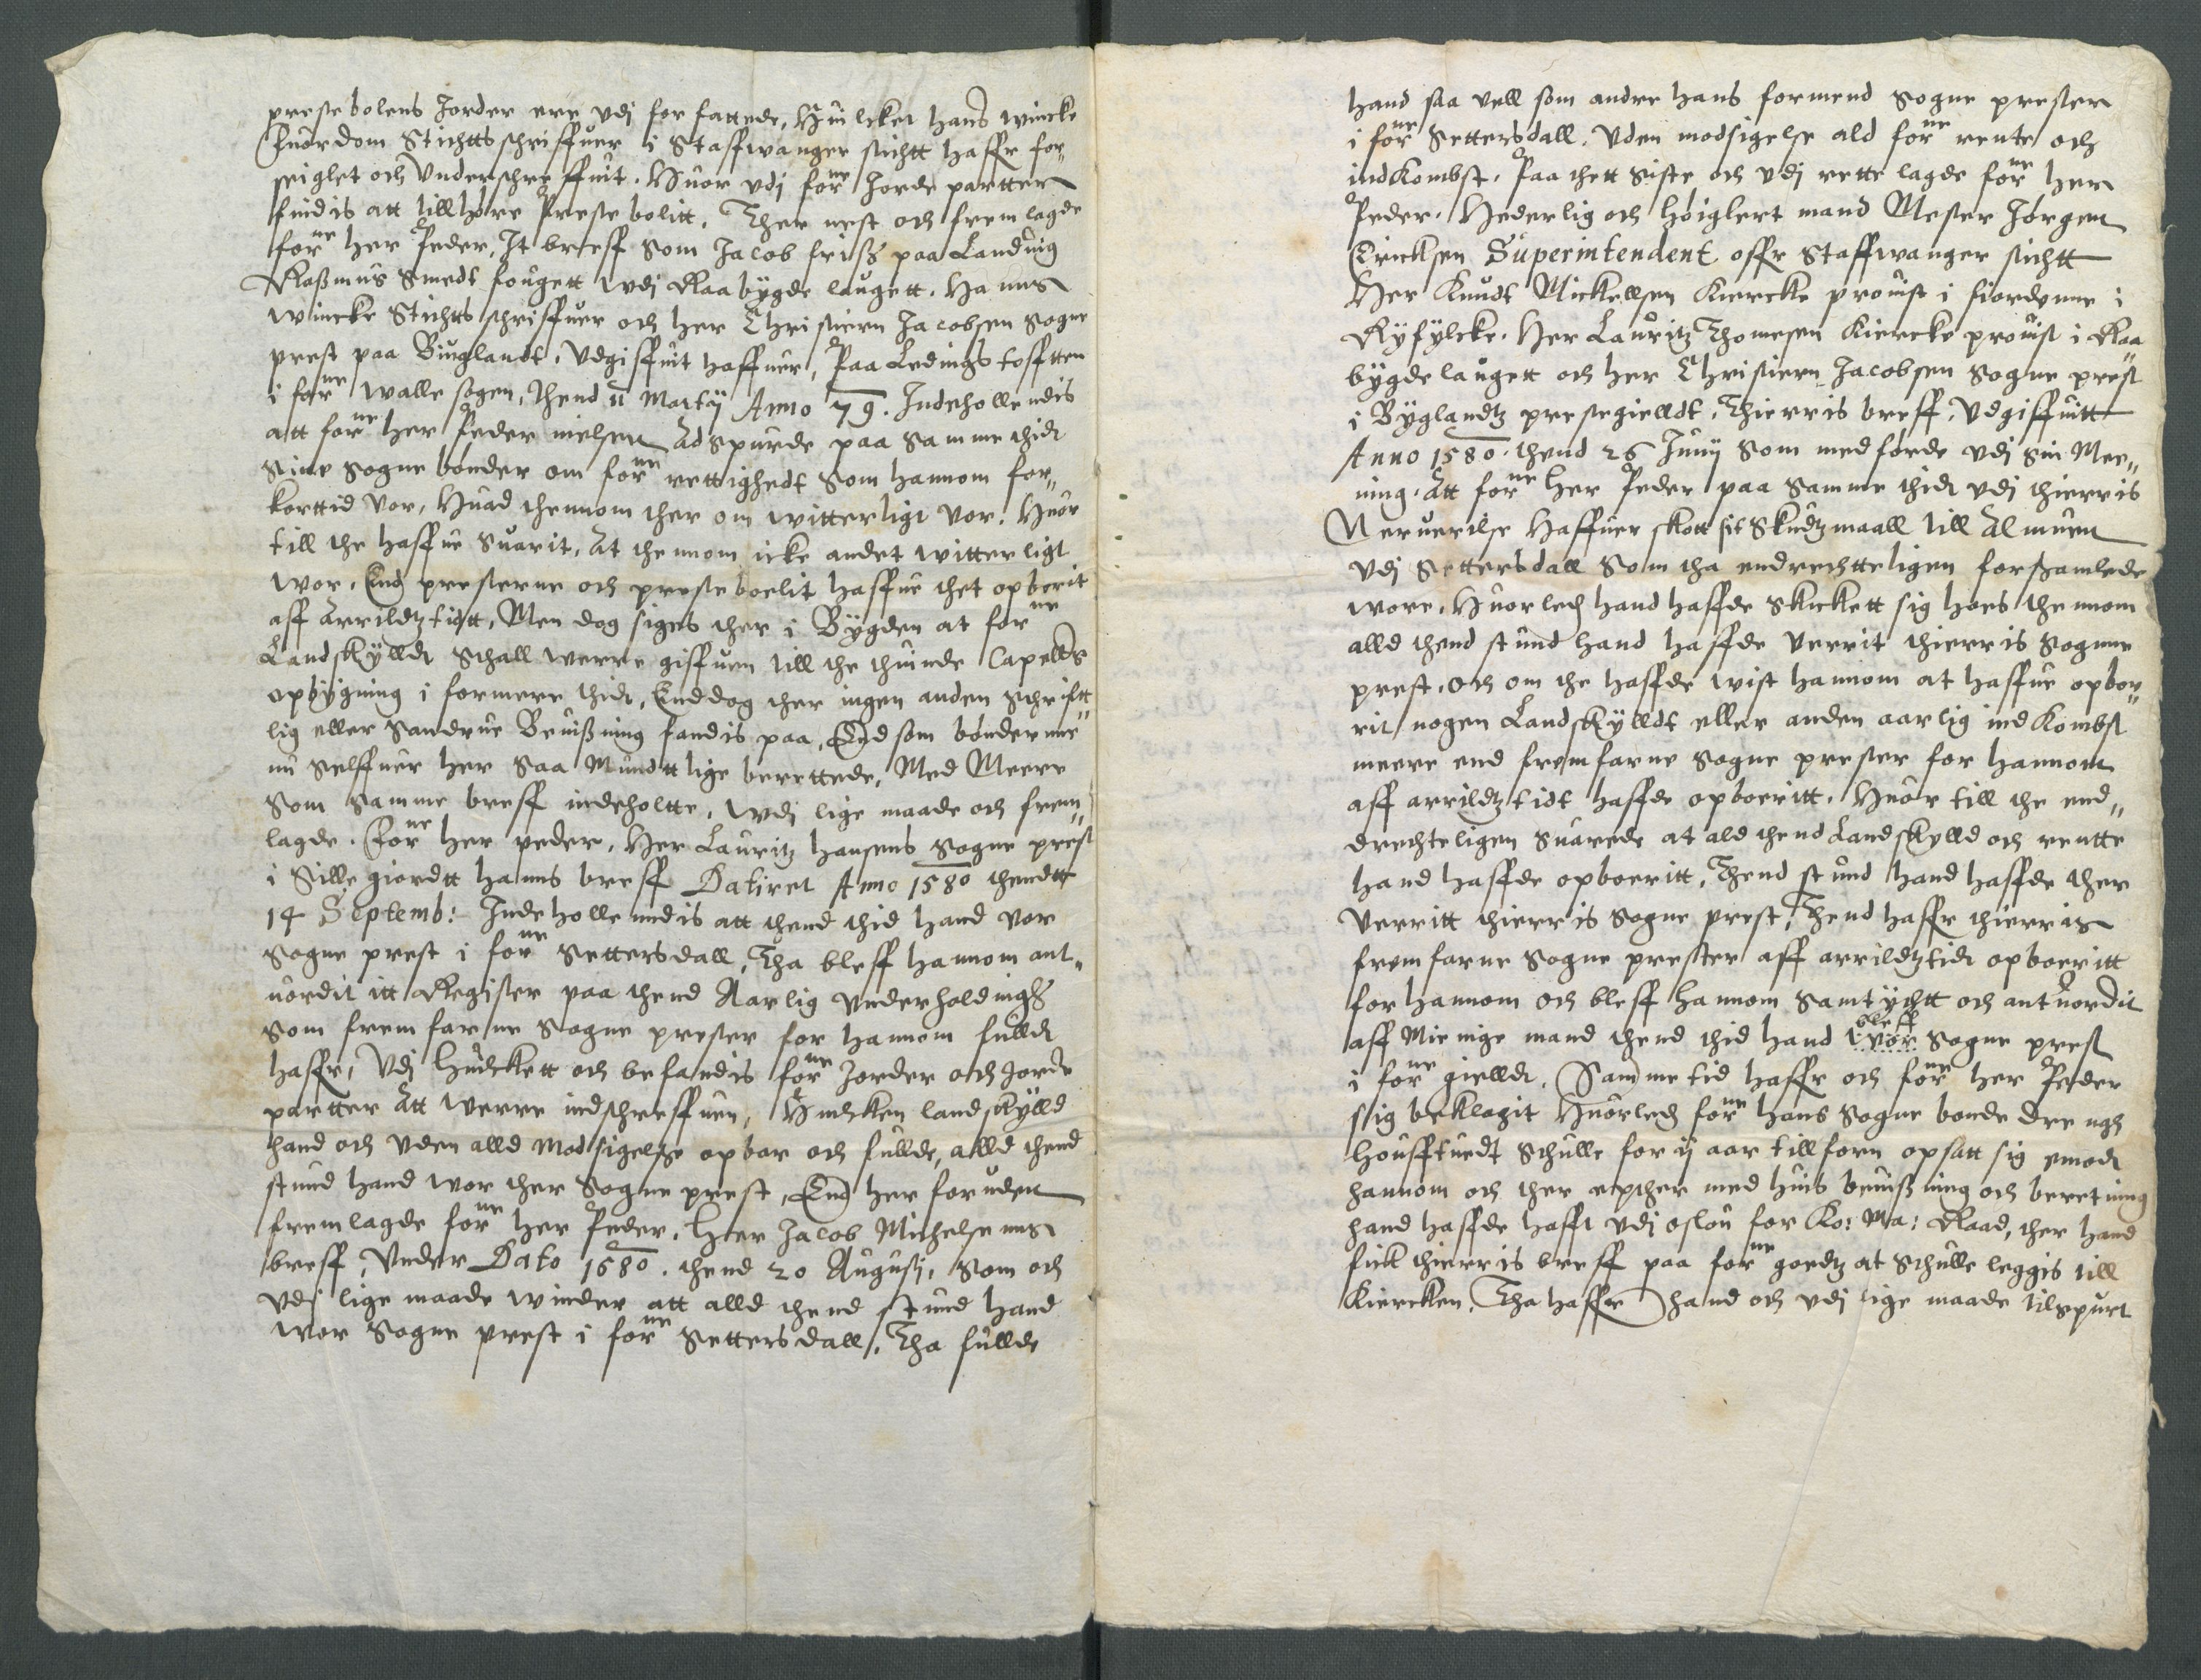 prestebolens Jorder ere vdj forfattede, Huilcket Hans wincke
Fuordom Stichttsschriffuer i Staffwanger sticht haffr for-
seiglet och Vnderschreffuit. Huor vdj forne Jorde partter
findis att tillhøre Prestebolitt, Ther nest och fremlagde
forne her Peder, It breff som Jacob friiß paa Landuig
Raßmus Smedt fougett Wdj Raabygde lauget. Hanns
wincke Stichtsschriffuer och her Christiern Jacobsen Sogne
prest paa Biuglandt, Vdgiffuit haffuer, Paa Ledings tofften
i forne walle sogen, thend 11 Martij Anno 79. Indehollendis
att forne her Peder nielsen Adspurde paa samme thidt
Sine Sogne bønder om forne rettighedt som hannom for-
korttid vor, Huad thennom ther om witterligt vor. Huor
till the haffue Suarit, At thennom icke andet witterligt
wor. End presterne och presteboelit haffue thet opborit
aff Arrildtztidtt, Men dog siges ther i Bygden at forne
Landskylldt schall werre giffuen till the thuinde Capells
opbygning i formere thidt, Enddog ther ingen anden schrifftt
lig eller Sandrue Beuißning fandis paa, End som bønderne
nu selffuer her saa Mundttlige berettede, Med Meere
Som samme breff indeholtte, Wdj lige maade och frem-
lagde. Forne her peder, Her Lauritz Hansens Sogne prest
i Sillegiordtt Hanns breff Datiret Anno 1580 thendtt
14 Septemb: Indehollendis att thend thid hand vor
Sogne prest i forne Settersdall, Tha bleff hannom ant-
uordit itt Register paa thend Aarlig Vnderholdings
som fremfarne Sogne prester for hannom fulldt
haffr, Vdj huilckett och befandis forne Jorder och Jorde
partter Att werre indschreffuen, Huilcken landskylld
hand och vden alld Modsigelße opbar och fullde, alld thend
stund hand wor ther Sogne prest, End her foruden
fremlagde forne her Peder, Her Jacob Michelsenns
breff, Vnder Dato 1580. thend 20 Augusti, som och
Vdj lige maade winder att alld thend stund hand
wor Sogne prest i forne Settersdall, Tha fullde
hand saa vell som andre hans formend Sogne prester
i forne Settersdall. Vden modsigelse ald forne rente och
indkombst. Paa thett siste och vdj rette lagde forne her
Peder. Hederlig och høiglert mand Mester Jørgen
Ericksen Superintendent offr Staffwanger sticht
Her Knudt Mickellsen Kiercke prouist i fiordenne i
Ryfylcke. Her Lauritz Thomesen Kiercke prouist i Raa
bygde lauget och her Christiern Jacobsen Sogne prest
i Byglandtz prestegielldt, Thierris breff, Vdgiffuitt
Anno 1580. thend 26 Junij som medførde vdj sin Mee-
ning. Att forne her Peder paa samme thidt vdj thierris
Neruerilse haffuer skott sit Skudtzmaall till Almuen
Vdj Settersdall som tha endrechtteligen forßamlede
wore. Huorledh hand haffde skickett sig hoes thennom
alld thend stund hand haffde verrit thierris Sogne
prest. Och om the haffde wist hannom at haffue opbor-
rit nogen Landskylldt eller anden aarlig indkombst
meere end fremfarne Sogne prester for hannom
aff arrildtztidt haffde opboeritt. Huor till the end-
drechteligen suarede at ald thend Landskylld och rentte
hand haffde opboeritt, Thend stund hand haffde ther
Verritt thierris Sogne prest, Thend haffr thierris
fremfarne Sogne prester aff arrildtztidt opboeritt
for hannom och bleff hannom samtychtt och antuordit
aff Mienige mand thend thid hand wor bleff Sogne prest
i forne gielldt. Samme tid haffr och forne her Peder
sig beklagit huorledh forne hans Sogne bonde dreng
Housftuedt schulle for ij aar tillforn opsatt sig emodt
hannom och ther epther med huis beuißning och beretning
hand haffde hafft vdj oslou for Ko: Ma: Raad, ther hand
fick thierris breff paa forne goedtz at schulle leggis till
Kiercken. Tha haffr hand och vdj lige maade tilspurt